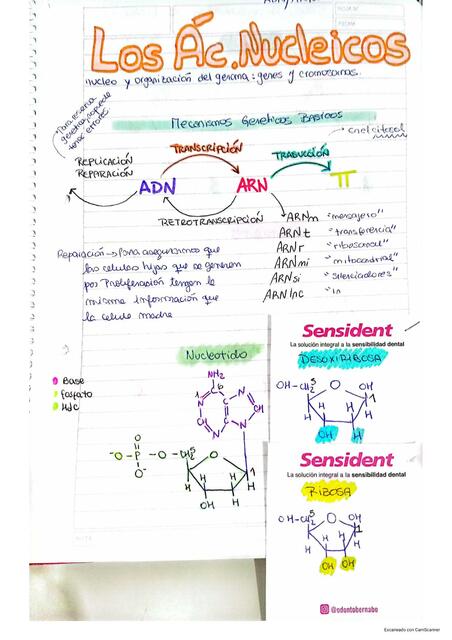 Los Ác. Nucleicos
Nucleo y organización del genoma: genes y cromosomas.
Mecanismos Geneticos Basicos
en el citosol
TRANSCRIPCIÓN
TRADUCCIÓN
REPLICACIÓN
REPARACIÓN
ADN
ARN
π
RETROTRANSCRIPCIÓN
ARNm "mensajero"
ARNt "transferencia"
ARNr "ribosomal"
ARNmi "mitocondrial"
ARNsi "silenciadores"
ARNlnc "ln
Reparación → Para asegurarnos que
las celulas hijas que se generen
por Proliferación tengan la
misma información que
la celula madre
Nucleotido
Base
Fosfato
H de C
NH2
6
1
N
N
CH
HC
N
N
O
-O-P-O-CH2
5
O-
O
H
H
H
H
1
OH
H
Sensident
La solución integral a la sensibilidad dental
DESOXIRIBOSA
OH-CH2
5
O
OH
1
H
H
H
H
OH
H
Sensident
La solución integral a la sensibilidad dental
RIBOSA
OH-CH2
5
O
OH
1
H
H
H
H
OH
OH
@odontobernabo
Escaneado con CamScanner